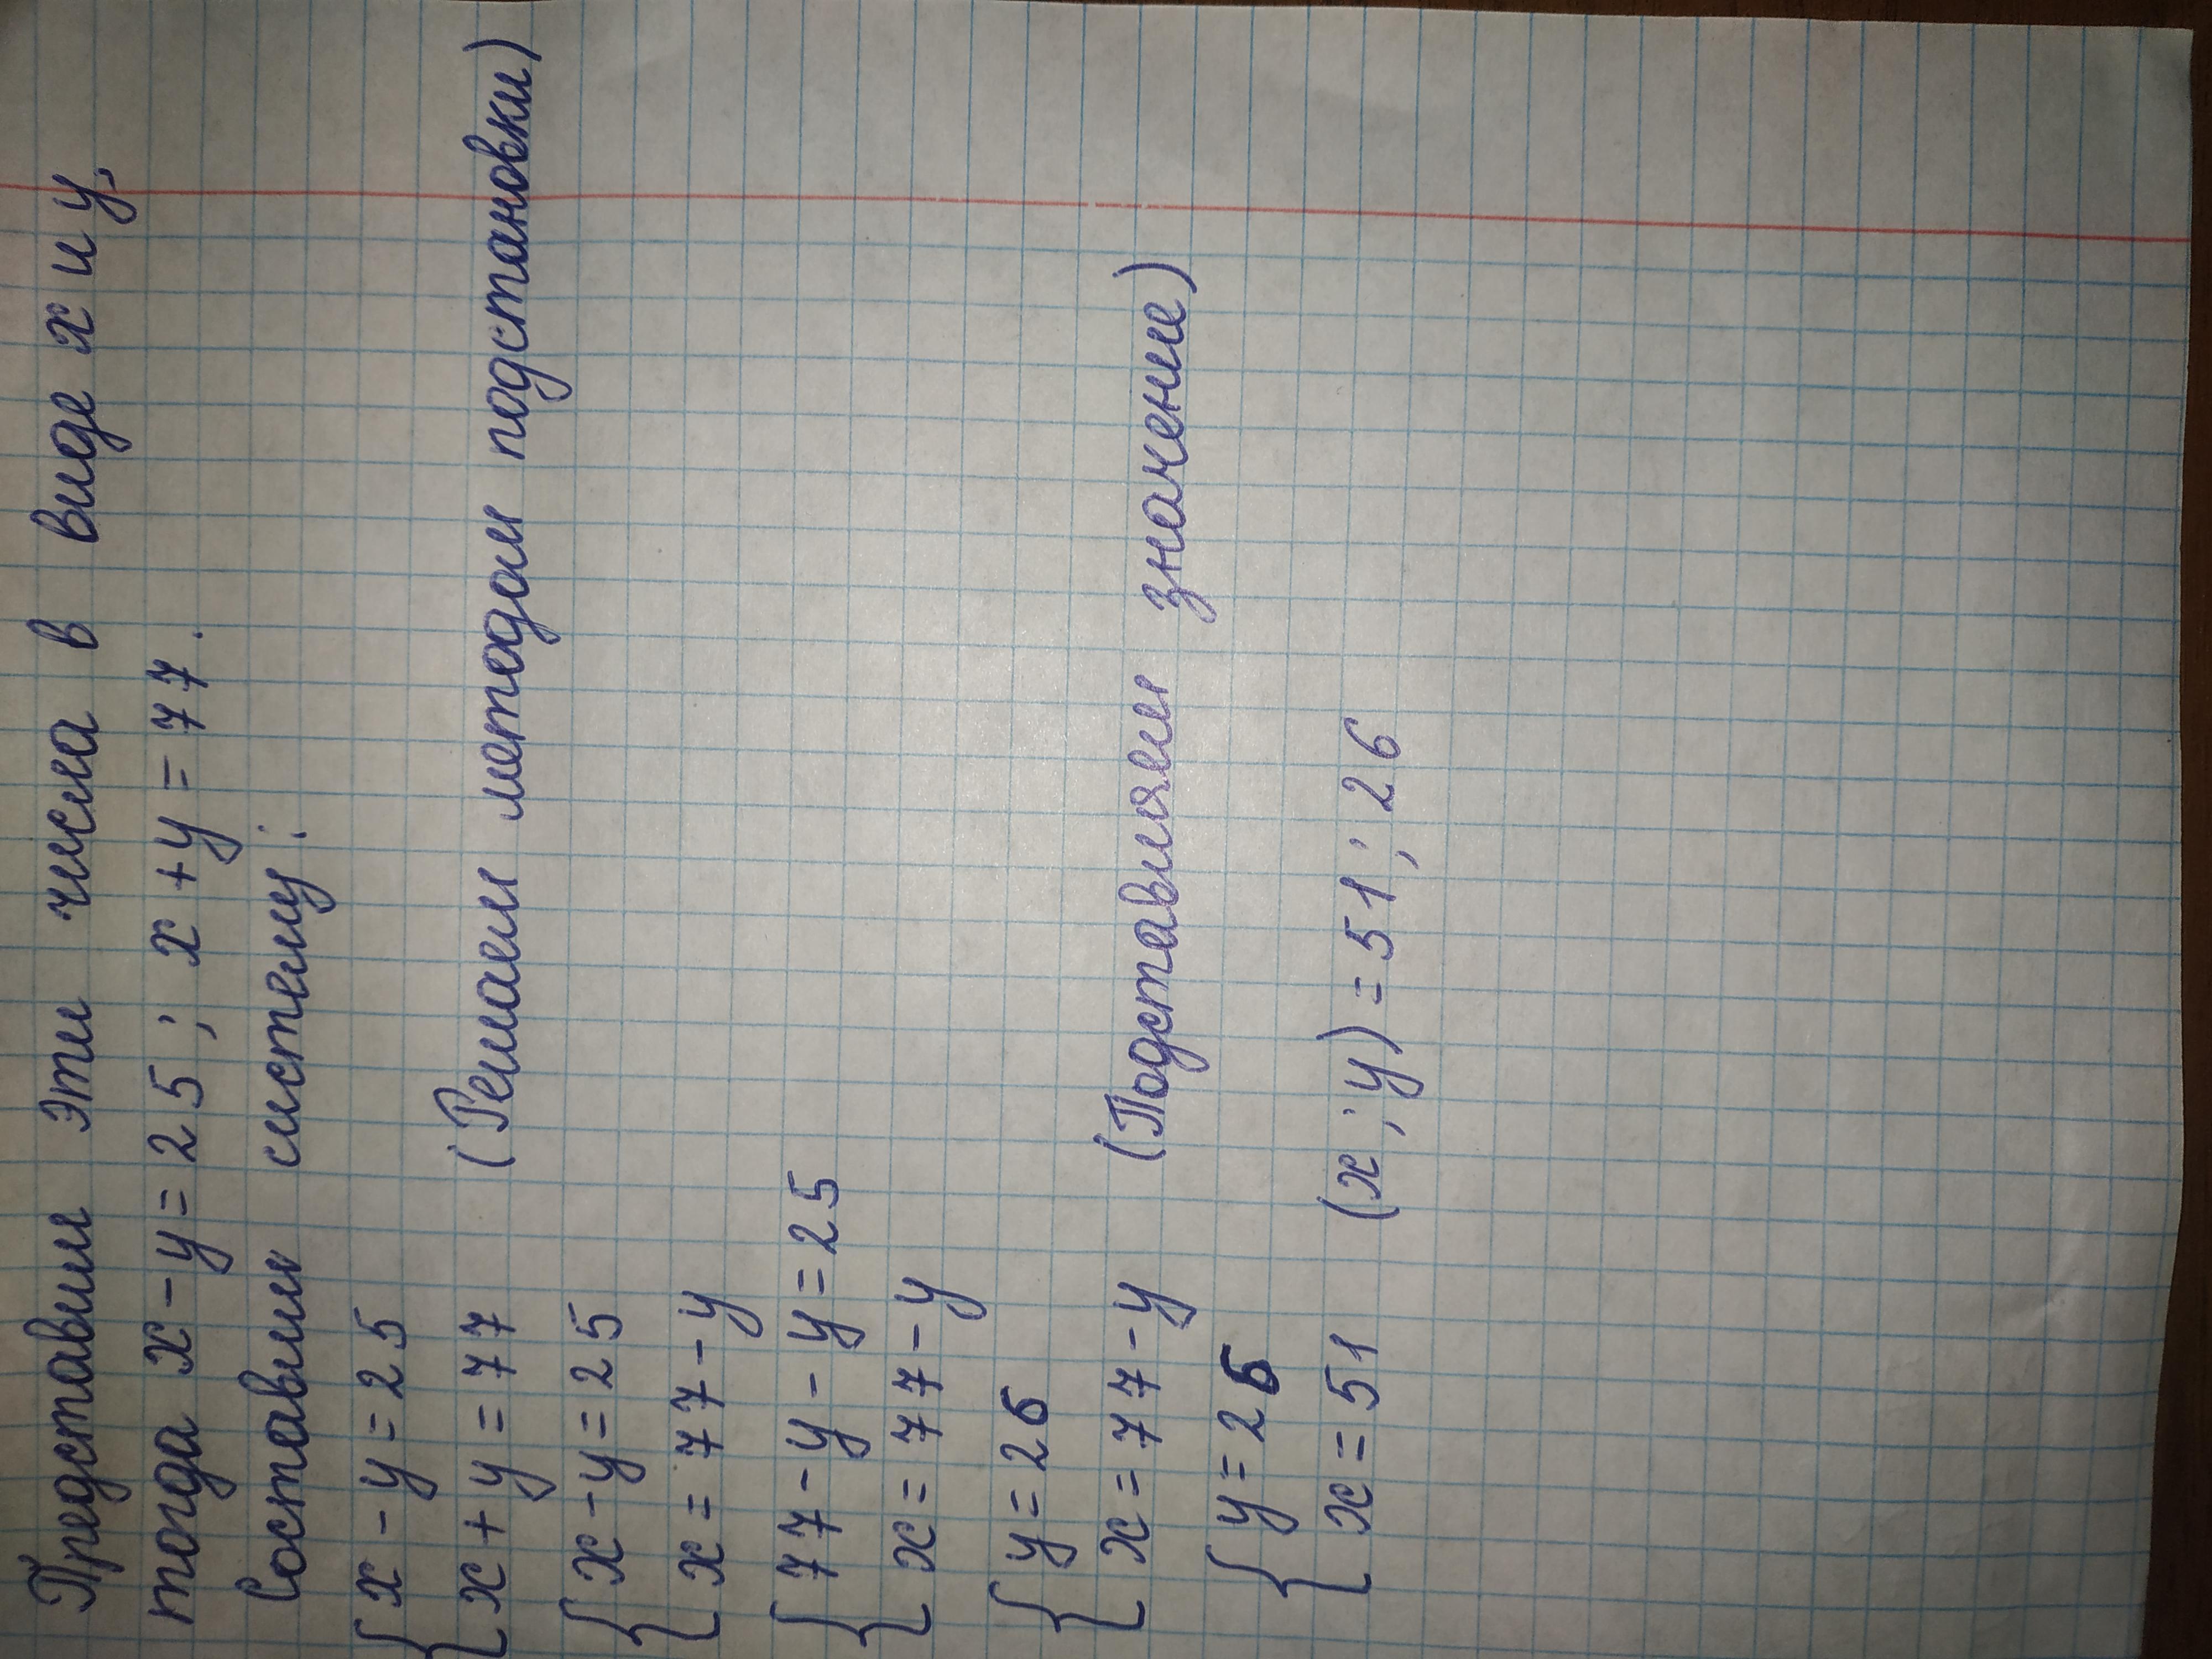 Представим эти числа в виде x и y,
тогда x - y = 25; x + y = 77.
Составим систему:
{ x - y = 25
{ x + y = 77 (Решаем методом подстановки)
{ x - y = 25
{ x = 77 - y
{ 77 - y - y = 25
{ x = 77 - y
{ y = 26
{ x = 77 - y (Подставляем значение)
{ y = 26
{ x = 51 (x; y) = 51; 26